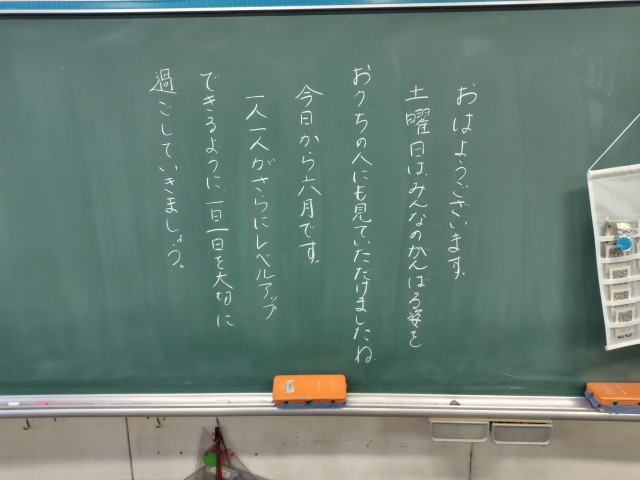 おはようございます。
土曜日は、みんなのがんばる姿を
おうちの人にも見ていただけましたね
今日から六月です。
一人一人がさらにレベルアップ
できるように、一日一日を大切に
過ごしていきましょう。